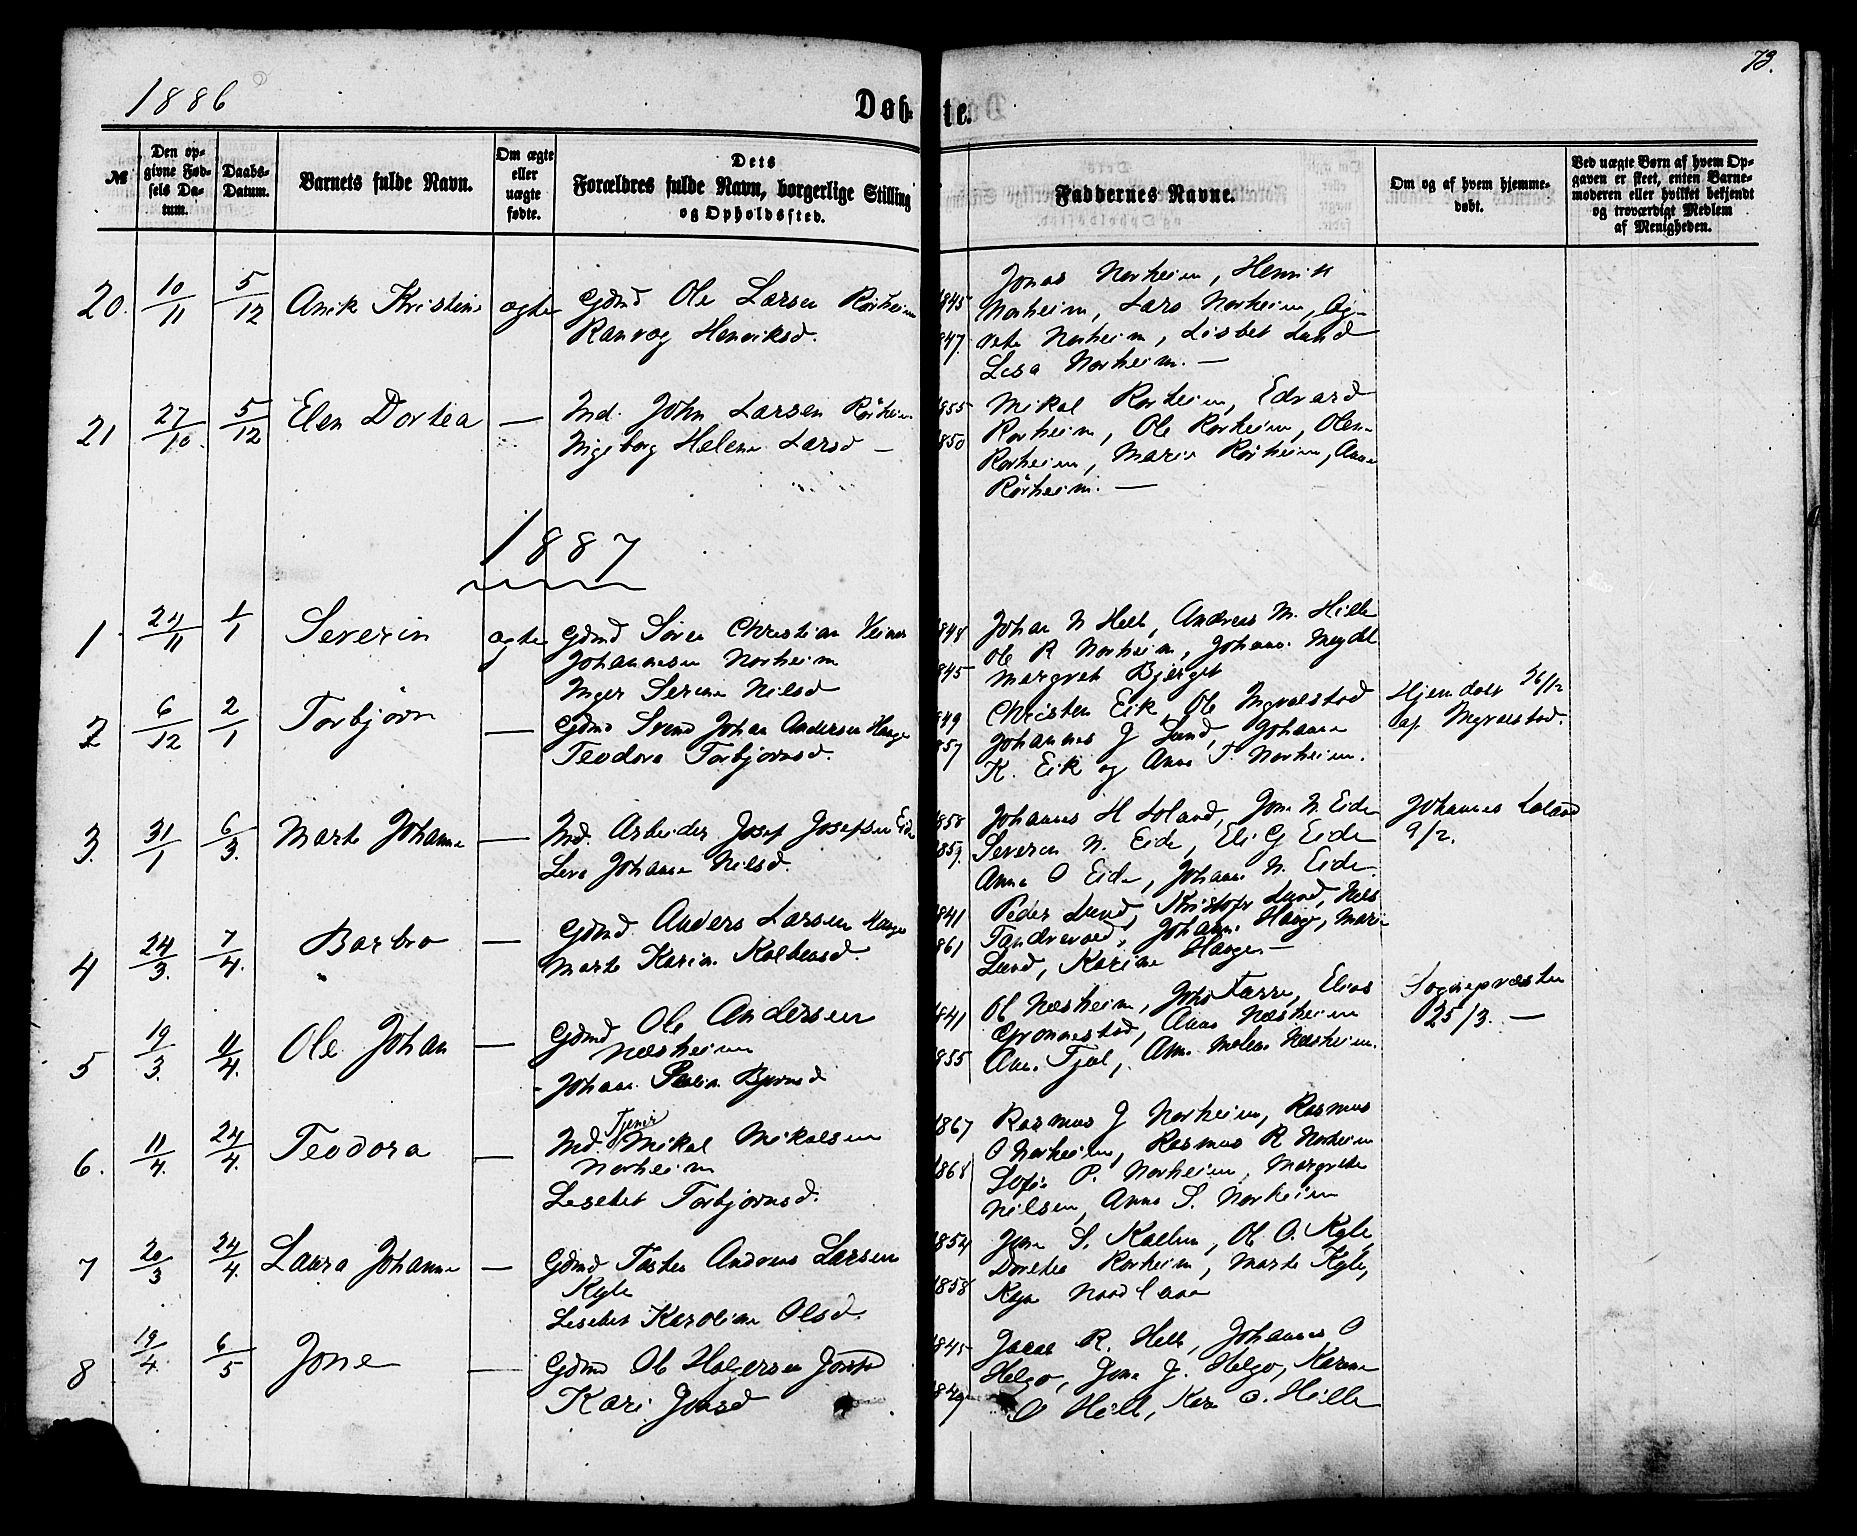 73.
1886
Døbte.
№
Den opgivne Fødsels Datum.
Daabs-Datum.
Barnets fulde Navn.
Om ægte eller uægte fødte.
Dets Forældres fulde Navn, borgerlige Stilling og Opholdssted.
Faddernes Navne.
Om og af hvem hjemmedøbt.
Ved uægte Børn af hvem Opgaven er skeet, enten Barnemoderen eller hvilket bekjendt og troværdigt Medlem af Menigheden.
20. 10/11 5/12 Anik Kristine ægte Gdmd Ole Larsen Rörheim
Ranvog Henriksd.
1845
1847.
Jonas Norheim, Henrik
Norheim, Lars Norheim,
Norheim, Lisbet Lund
Lisa Norheim. —
21 27/10. 5/12 Elen Dortea — Ind. John Larsen Rörheim
Ingeborg Helene Larsd —
1855
1850
Mikal Rorheim, Edvard
Rorheim, Ole Rorheim, Olene
Rorheim, Marie Rörheim, Anne
Rörheim. —
1887
1. 24/11 1/1 Severin ægte Gdmd Sören Christian
Johannesen Norheim
Inger Serine Nilsd
1848
1845
Johan N Helle, Andreas M. Hille
Ole R Norheim, Johanne Mydl
Margret Bjerget
2 6/12 2/1 Torbjørn — Gdmd Svend Johan Andersen Hauge
Teodora Torbjornsd.
1849
1857
Christen Eik, Ole Ingvalstad
Johannes J Lund, Johanne
K. Eik og Anna T. Norheim.
Hjemdøbt 16/12
af Ingvalstad.
3. 31/1 6/3. Marte Johanne — Ind. Arbeider Josef Josefsen Eide
Lava Johanne Nilsd.
1858
1859.
Johannes H Loland, Jone N. Eide
Severin N. Eide, Eli G Eide
Anna O Eide, Johanne N. Eide.
Johannes Loland
9/2.
4 24/3. 7/4. Barbro — Gdmd Anders Larsen Hauge
Marte Karine Kolbensd.
1841
1861
Peder Lund, Kristofer Lund, Nels
Tandrevold, Johanne Hauge, Marie
Lund, Karine Haugen —
5 19/3. 11/4. Ole Johan — Gdmd Ole Andersen
Næsheim
Johanne Bjornsd
1841
1855
Ole Næsheim, Johs Farre, Elias
Grønnestad, Anna Næsheim
Ane Tjøl, Ane Malene Næsheim.
Sognepræsten
25/3. —
6. 11/4. 24/4. Teodora — Ind. Tjener Mikal Mikalsen
Norheim
Lesebet Torbjornsd.
1867
1868
Rasmus J Norheim, Rasmus
O Norheim, Rasmus R Norheim
Sofie P. Norheim, Margrete
Nilsen, Anna S. Norheim
7 20/3 24/4. Laura Johanne — Gdmd Andreas Larsen
Kyle
Lesebet Karoline Olsd.
1854
1858
Jone S. Kallen, Ole O. Kyle,
Dorthea Rorheim, Marte Kyle,
8 19/4. 6/5 Jone — Gdmd Ole Holgersen
Kari Jonsd
1845
1849
Jacob R. Helle, Johannes O
Helgo, Jone J. Helgo, Karine
O Helle, Kari O. Hille